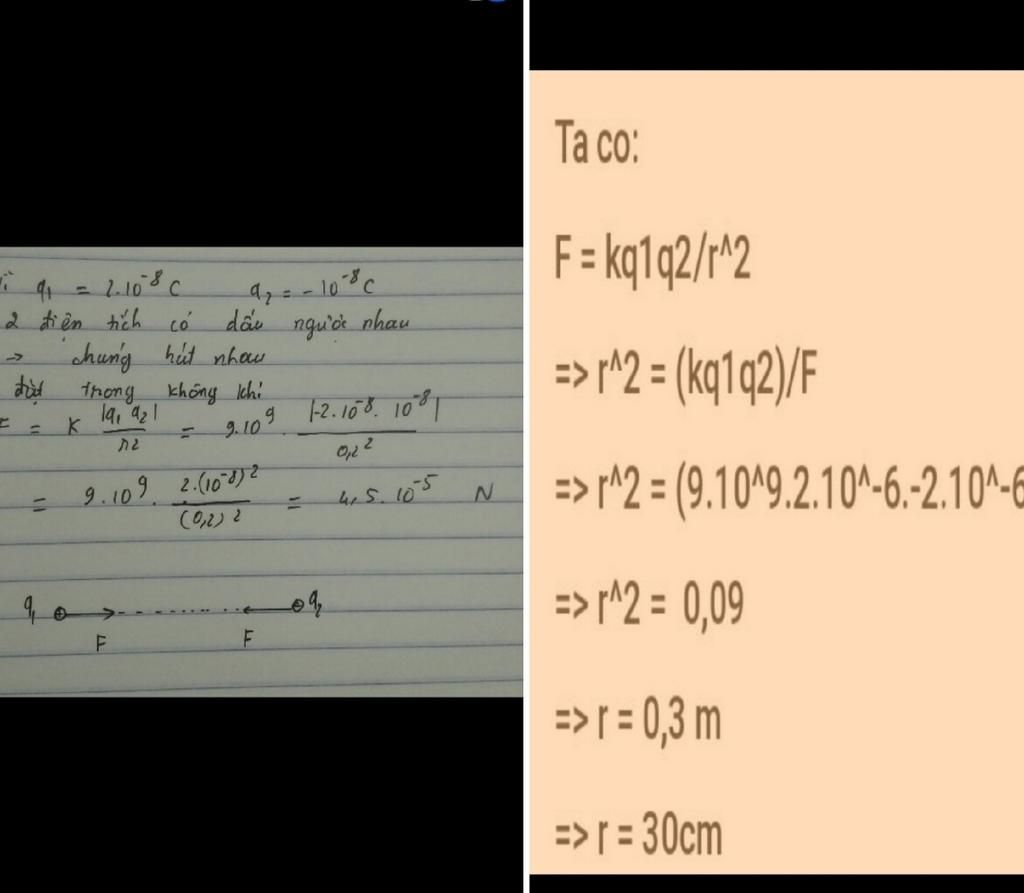 q1 = 2.10^-8 C q2 = -10^-8 C
2 điện tích có dấu ngược nhau
→ chúng hút nhau
đặt trong không khí
= K |q1 q2| / r2 = 9.10^9 . |-2.10^-8. 10^-8| / 0,2^2
= 9.10^9 . 2.(10^-8)^2 / (0,2)^2 = 4,5.10^-5 N
q1 ⊕ ⊖ q2
F F
Ta co:
F = kq1q2/r^2
=> r^2 = (kq1q2)/F
=> r^2 = (9.10^9.2.10^-6.-2.10^-6
=> r^2 = 0,09
=> r = 0,3 m
=> r = 30cm